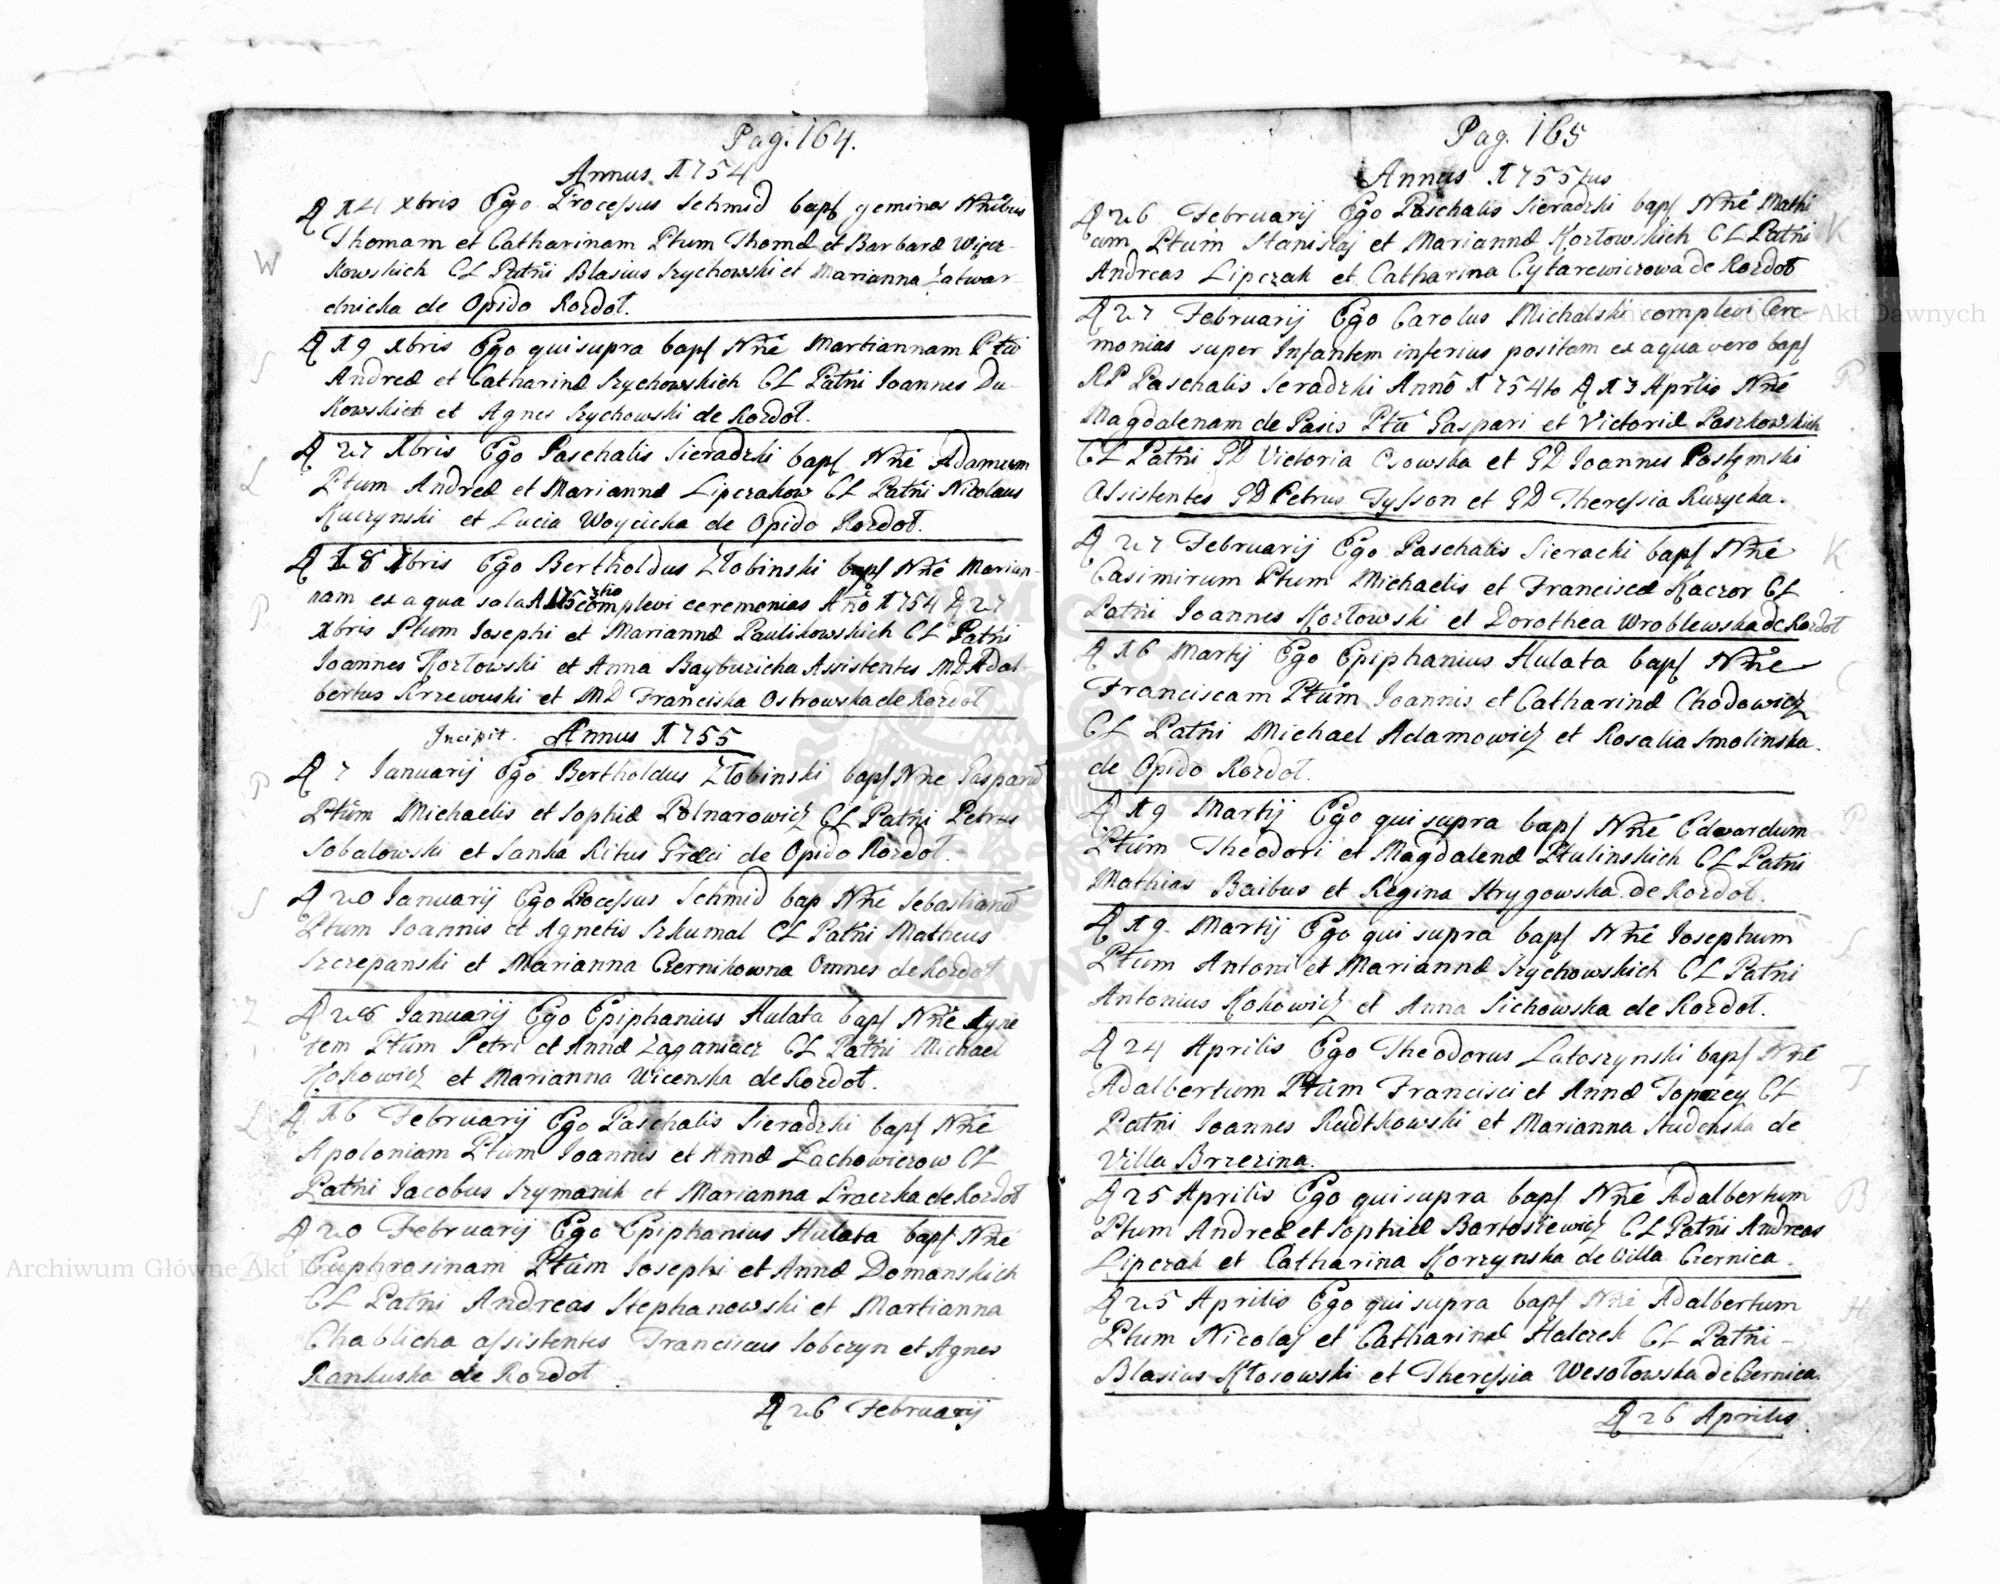 Pag. 164.
Annus 1754
D 14 Xbris Ego Processus Schmid bapt geminos Nnibus
W
Thomam et Catharinam Ptum Thomæ et Barbaræ Wiper-
kowskich CL Patñi Blasius Szychowski et Marianna Zatwar-
dnicka de Opido Rozdoł.
D 19 Xbris Ego qui supra bapt Nñe Martiannam Ptũ
S
Andreæ et Catharinæ Szychowskich CL Patñi Ioannes Du-
kowskich et Agnes Szychowski de Rozdoł.
D 27 Xbris Ego Paschalis Sieradzki bapt Nñe Adamum
L
Ptum Andreæ et Mariannæ Lipczakow CL Patñi Nicolaus
Kuczynski et Lucia Woycicka de Opido Rozdoł.
D 18 Xbris Ego Bertholdus Złobinski bapt Nñe Marian-
nam ex aqua sola complevi ceremonias Año 1754 D 27
P
Xbris Ptum Iosephi et Mariannæ Paulikowskich CL Patñi
Ioannes Kozłowski et Anna Bayburicha Assistentes MD Adal-
bertus Krzewuski et MD Franciska Ostrowska de Rozdoł
Incipit. Annus 1755
D 7 Ianuarij Ego Bertholdus Złobinski bapt Nñe Gasparũ
P
Ptum Michaelis et Sophiæ Polnarowicz CL Patñi Petrus
Sobalowski et Sanka Ritus Græci de Opido Rozdoł.
D 20 Ianuarij Ego Processus Schmid bap Nñe Sebastianũ
S
Ptum Ioannis et Agnetis Szkumal CL Patñi Matheus
Szczepanski et Marianna Czernikowna Omnes de Rozdoł
D 28 Ianuarij Ego Epiphanius Hulata bapt Nñe Agne
Z
tem Ptum Petri et Annæ Zaganiacz CL Patñi Michael
Kokowicz et Marianna Wicenska de Rozdoł.
D 16 Februarij Ego Paschalis Sieradzki bapt Nñe
L
Apoloniam Ptum Ioannis et Annæ Lachowiczow CL
Patñi Iacobus Szymanik et Marianna Praczka de Rozdoł
D 20 Februarij Ego Epiphanius Hulata bapt Nñe
Euphrosinam Ptum Iosephi et Annæ Domanskich
CL Patñi Andreas Stephanowski et Martianna
Chablicka assistentes Franciscus Soberyn et Agnes
Rankuska de Rozdoł.
D 26 Februarij
Pag. 165
Annus 1755tus
D 26 Februarij Ego Paschalis Sieradzki bapt Nñe Mathi
K
am Ptum Stanislaj et Mariannæ Kozłowskich CL Patñi
Andreas Lipczak et Catharina Cytarewiczowa de Rozdoł
D 27 Februarij Ego Carolus Michalski complevi Cere-
monias super Infantem inferius positam ex aqua vero bapt
RP Paschalis Seradzki Anno 1754to D 17 Aprilis Nñe
P
Magdalenam de Pasis Ptũ Gaspari et Victoriæ Paszkowskich
CL Patñi GD Victoria Osowska et GD Ioannes Postymski
Assistentes GD Petrus Tysson et GD Theressia Ruzycka.
D 27 Februarij Ego Paschalis Sieracki bapt Nñe
K
Casimirum Ptum Michaelis et Franciscæ Kaczor CL
Patñi Ioannes Kozłowski et Dorothea Wroblewska de Rozdoł
D 16 Martij Ego Epiphanius Hulata bapt Nñe
C
Franciscam Ptum Ioannis et Catharinæ Chodowicz
CL Patñi Michael Adamowicz et Rosalia Smolinska.
de Opido Rozdoł.
D 19 Martij Ego qui supra bapt Nñe Edvardum
P
Ptum Theodori et Magdalenæ Ptulinskich CL Patñi
Mathias Baibus et Regina Strygowska de Rozdoł.
D 19 Martij Ego qui supra bapt Nñe Iosephum
S
Ptum Antoni et Mariannæ Szychowskich CL Patñi
Antonius Kokowicz et Anna Sichowska de Rozdoł.
D 24 Aprilis Ego Theodorus Latoszynski bapt Nñe
T
Adalbertum Ptum Francisci et Annæ Toporzey CL
Patñi Ioannes Rudtkowski et Marianna Hudenska de
Villa Brzezina.
D 25 Aprilis Ego qui supra bapt Nñe Adalbertum
B
Ptum Andreæ et Sophiæ Bartosiewicz CL Patñi Andreas
Lipczak et Catharina Korzynska de Villa Czernica.
D 25 Aprilis Ego qui supra bapt Nñe Adalbertum
H
Ptum Nicolaj et Catharinæ Halczek CL Patñi -
Blasius Kłosowski et Theressia Wesołowska de Czernica.
D 26 Aprilis.
Archiwum Główne Akt Dawnych
Archiwum Główne Akt Dawnych